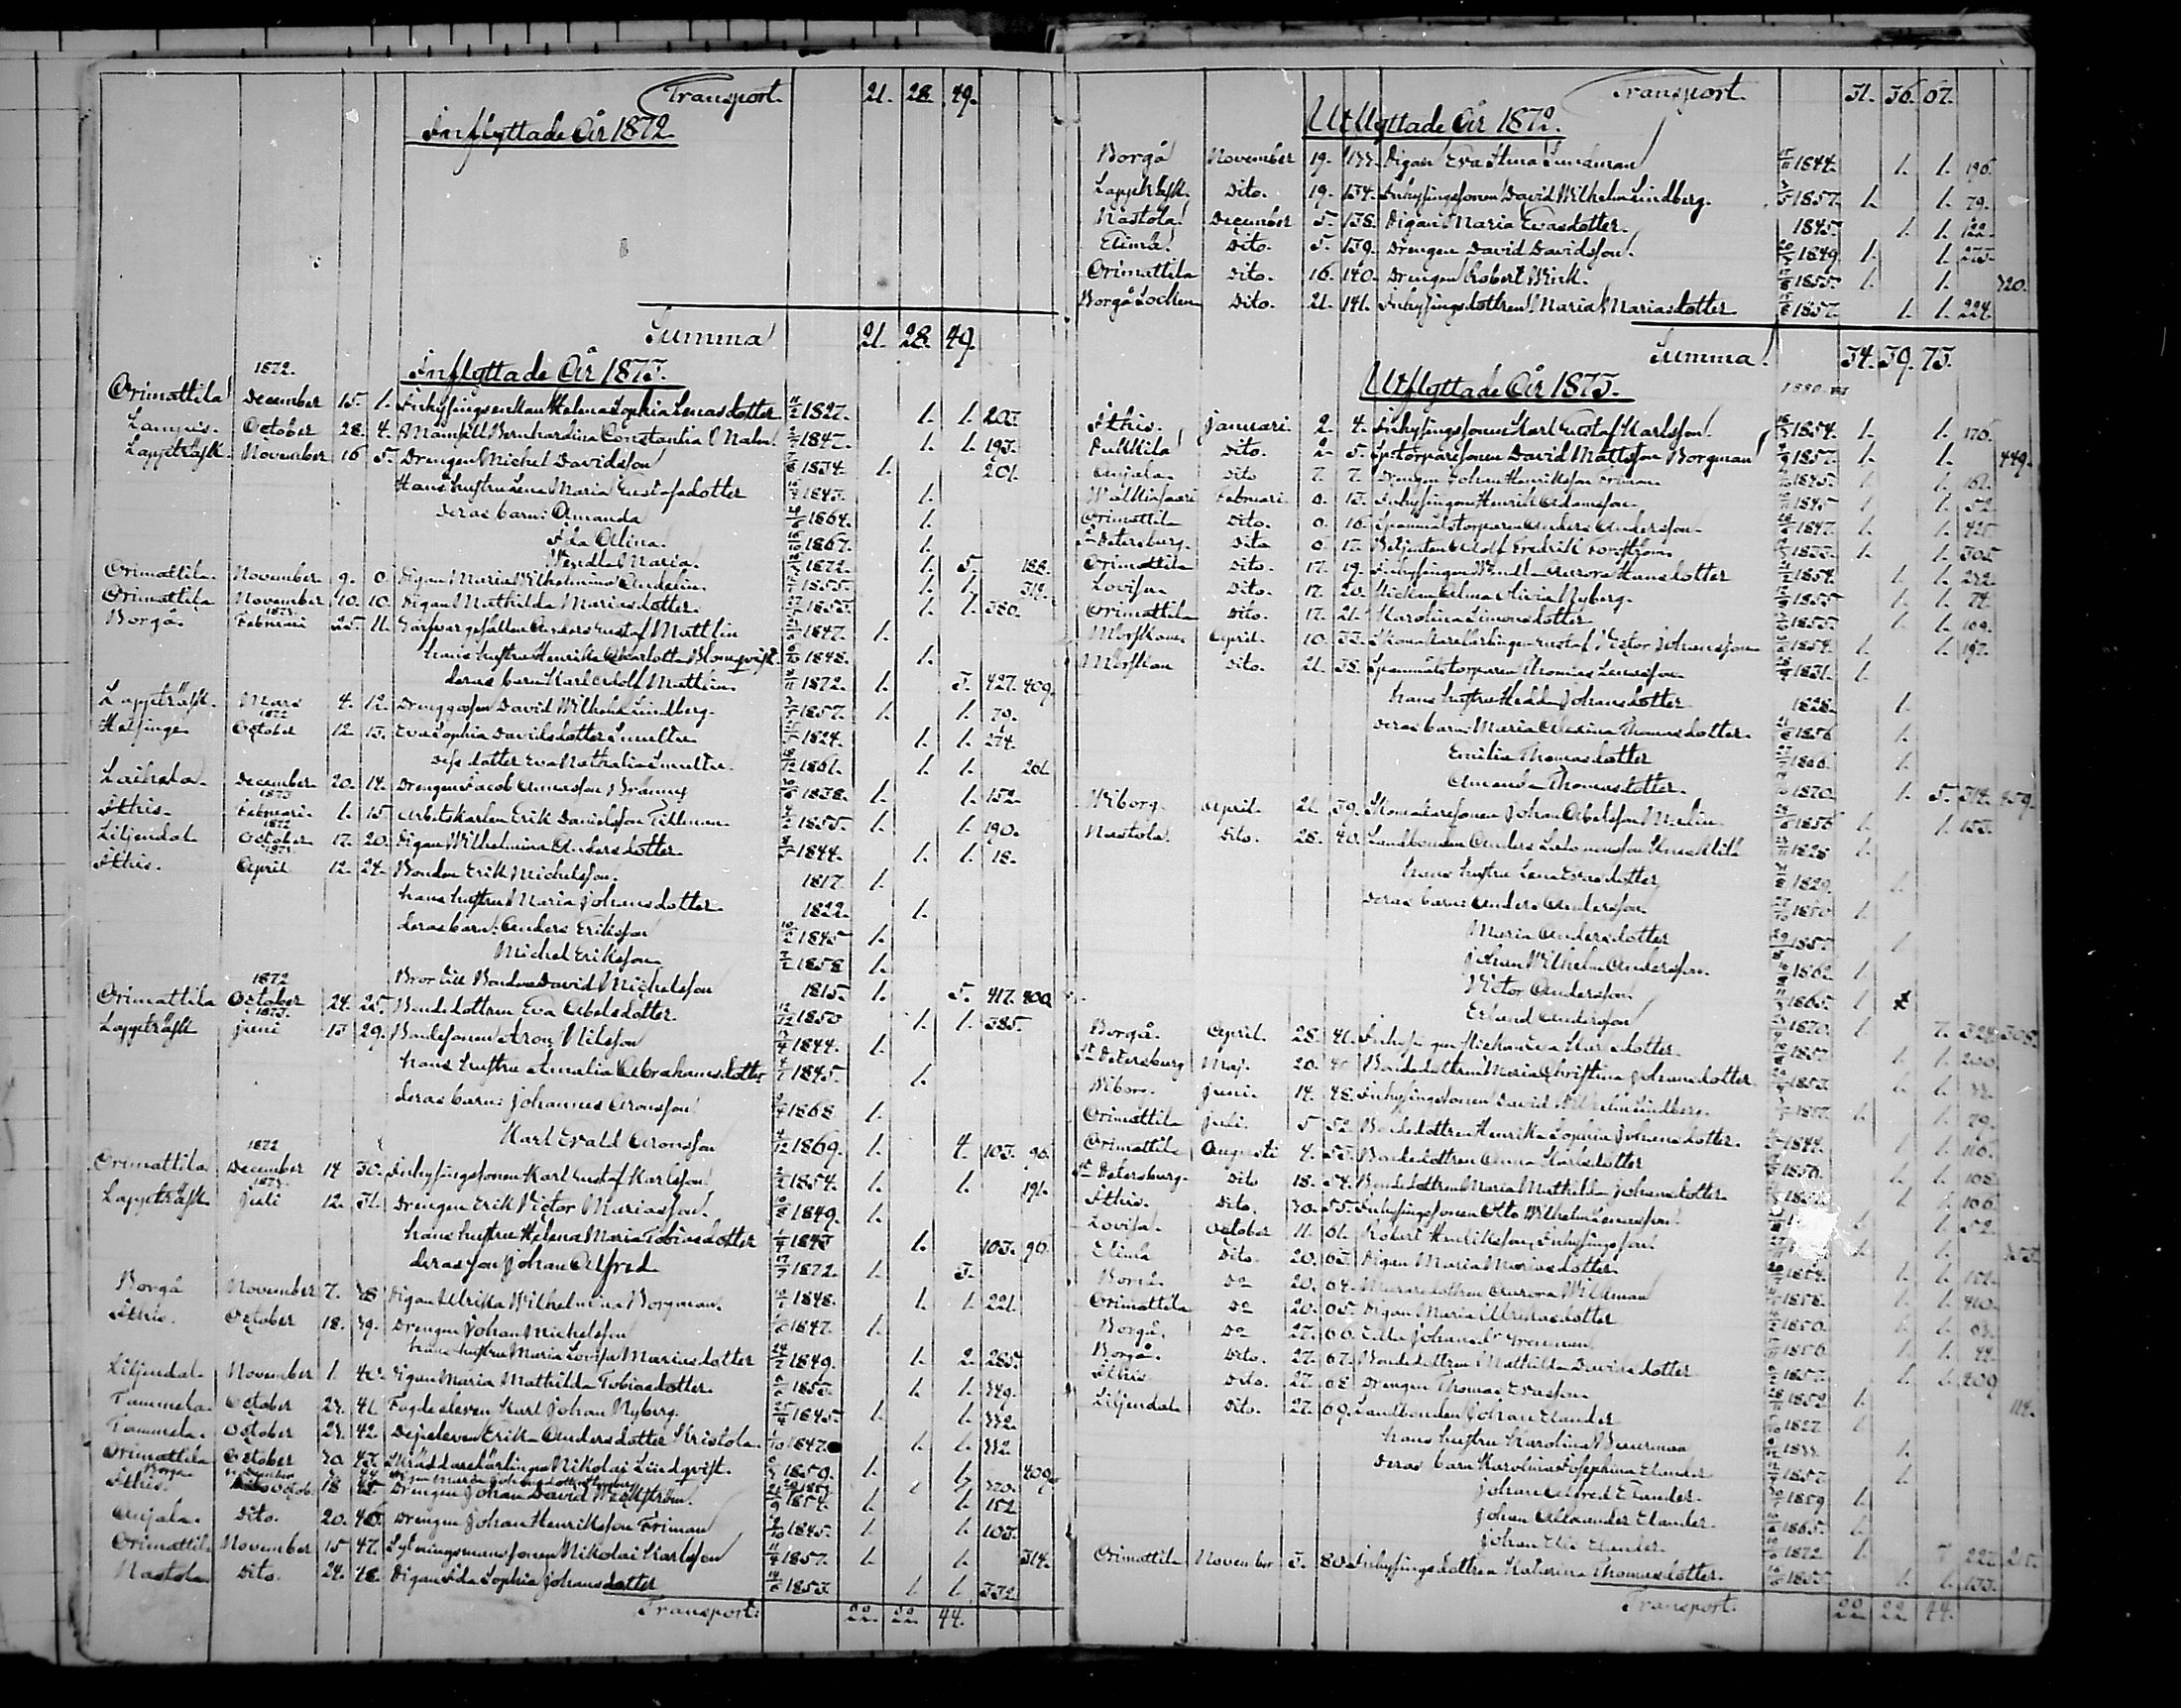 Transport. 21. 28. 49.
Inflyttade År 1872
Summa 21. 28. 49.
Inflyttade År 1873.
1872.
Orimattila December 15. 1. Inhysingsenkan Helena Sophia Lenasdotter 1827. 1. 1. 203.
Lampis. October 28. 4. Mamsell Bernhardina Constantia 1847. 1. 1. 193.
Lappträsk. November 16 5. Drengen Michel Davidsson 1834 1. 201.
Hans hustru Lena Maria Gustafsdotter 1843. 1.
deras barn: Amanda 1864. 1.
Ida Alina. 1867. 1.
Wendla Maria. 1872. 1. 5. 188.
Orimattila. November 9. Pigan Maria Wilhelmina 1855. 1. 1.
Orimattila November 10. 10. Pigan Mathilda Mariasdotter. 1853. 1. 1. 380.
1873.
Borgå. Februari 25. 11. Garfvargesällen Anders Gustaf Mattlin 1847. 1.
hans hustru Henrika Charlotta Blomqvist. 1848. 1.
deras barn: Karl Adolf Mattlin. 1872. 1. 3. 427. 409.
Lappträsk. Mars 4. 12. Drenggossen David Wilhelm Lindberg. 1857. 1. 1. 79.
1872
Helsinge October 12 13. Eva Sophia Davidsdotter 1824. 1. 1. 274.
dess dotter Eva Nathalia 1861. 1. 1. 261.
Laihela. December 20. 14. Drengen Jacob 1838. 1. 1. 152.
1873
Ithis. Februari. 1. 15 Arbetskarlen Erik Danielsson Tillman. 1855. 1. 1. 190.
1872
Liljendal October 17. 20. Pigan Wilhelmina Andersdotter. 1844. 1. 1. 18.
1873.
Ithis. April 12. 24. Bonden Erik Michelsson. 1817. 1.
hans hustru Maria Johansdotter 1822. 1.
deras barn: Anders Eriksson 1845 1.
Michel Eriksson 1858 1.
Bror till Bonden David Michelsson 1815. 1. 5. 417. 400.
1872
Orimattila October 24. 25. Bondedottren Eva Abelsdotter. 1850 1. 1. 385.
1873.
Lappträsk juni 13 29. Bondesonen Aron Nilsson 1844. 1.
hans hustru Amalia Abrahamsdotter 1845. 1.
deras barn: Johannes Aronsson 1868 1.
Karl Evald Aronsson 1869. 1. 4. 103. 96.
1872
Orimattila December 14 30. Inhysingssonen Karl Gustaf Karlsson 1854. 1. 1. 191.
1873.
Lappträsk juli 12. 31. Drengen Erik Victor Mariasson. 1849. 1.
hans hustru Helena Maria Tobiasdotter 1843 1. 103. 96.
deras son Johan Alfred 1872. 1. 3.
Borgå November 7. 38 Pigan Ulrika Wilhelmina Borgman. 1848. 1. 1. 221.
Ithis. October 18. 39. Drengen Johan Michelsson 1847. 1.
hans hustru Maria Lovisa Mariasdotter 1849. 1. 2. 285.
Liljendal. November 1. 40. Pigan Maria Mathilda Tobiasdotter. 1. 1.
Tammela. October 41. Fogdeeleven Karl Johan Nyberg. 1845. 1. 1. 332.
Tammela. October 42 Dejeleven Erika Andersdotter Kristola. 1847. 1. 1. 332
Orimattila October 30. 43. Skräddarelärlingen Nikolai Lindqvist. 1859. 1. 1. 409.
Borgå 44 Pigan Maria
Ithis. Octob. 18 45 Drengen Johan David 1854. 1. 1. 152
Anjala. Dito. 20. 46. Drengen Johan Henriksson Friman 1845. 1. 1. 103.
Orimattila November 15 47. Nikolai Karlsson 1857. 1. 1. 314.
Nastola. Dito. 24. 48. Pigan Ida Sophia Johansdotter 1853 1. 1. 332.
Transport. 22. 22. 44.
Transport. 31. 36. 67.
Utflyttade År 1872.
Borgå November 19. 133. Pigan Eva Stina Lundman 1844. 1. 1. 196.
Lappträsk. Dito. 19. 134. Inhysingssonen David Wilhelm Lindberg. 1857. 1. 1. 79.
Nastola. December 5. 138. Pigan Maria Evasdotter. 1845. 1. 1. 122.
Elimä. Dito. 5. 139. Drengen David Davidsson. 1849. 1. 1. 273.
Orimattila Dito. 16. 140. Drengen Robert 1855. 1. 1. 320.
Borgå Socken Dito. 21. 141. Inhysingsdottren Maria Mariasdotter 1857. 1. 1. 224.
Summa 34. 39. 73.
Utflyttade År 1873.
Ithis. Januari. 2. 4. Inhysingssonen Karl Gustaf Karlsson. 1854. 1. 1. 176.
Pukkila Dito. 2. 5. David Mattsson Borgman 1857. 1. 1. 449.
Anjala. Dito 7. 7. Drengen Johan Henriksson Friman. 1845. 1. 1.
Februari 13. Inhysingen Henrik Adamsson. 1845 1. 1. 52.
Orimattila Dito. 16. Spannmålstorparen Anders Andersson. 1847. 1. 1. 425.
St Petersburg. Dito 17. Betjenten Adolf Fredrik 1833. 1. 1. 305
Orimattila Dito. 17. 19. Inhysingen Wendla Aurora Hansdotter 1854. 1. 1. 242.
Lovisa. Dito. 17. 20. Alma Olivia Nyberg. 1855 1. 1. 74.
Orimattila Dito. 17. 21. Karolina Simonsdotter 1853. 1. 1. 109.
Mörskom. April. 10. 33. Skomakarelärlingen Gustaf Victor Johansson 1854. 1. 1. 197.
Mörskom Dito. 21. 38. Spannmålstorparen Thomas 1831. 1.
hans hustru Hedda Johansdotter 1828. 1.
deras barn: Maria Thomasdotter. 1856 1.
Emilia Thomasdotter 1866. 1.
Amanda Thomasdotter. 1870. 1. 5. 314. 459.
Wiborg. April. 21. 39. Skomakaresonen Johan Abelsson Malin. 1856 1. 1. 153.
Nastola. Dito. 28. 40. Landbonden Anders Salomonsson 1828 1.
hans hustru Lena Evasdotter 1829. 1.
deras barn: Anders Andersson 1850 1.
Maria Andersdotter 1855 1
Johan Wilhelm Andersson. 1862 1.
Victor Andersson 1865 1
Erland Andersson 1870. 1 7. 324. 308.
Borgå. April. 28. 41. Eva Karlsdotter. 1857. 1. 1. 200.
St Petersburg Maj. 20. Bondedottren Maria Christina Johansdotter 1853 1. 1.
Wiborg. Juni. 14. 48. Inhysingssonen David Wilhelm Lindberg. 1857. 1. 1. 79.
Orimattila Juli. 5 52. Bondedottren Henrika Sophia Johansdotter. 1844. 1. 1. 116.
Orimattila Augusti 4. 53. Bondedottren Anna Karlsdotter 1850. 1. 1. 108.
St Petersburg. Dito 18. 54. Bondedottren Maria Mathilda Johansdotter 1. 1. 106.
Ithis. Dito. 30. 55. Inhysingssonen Otto Wilhelm 1. 1. 52.
Lovisa. October 11. 61. Robert Henriksson, Inhysingsson. 1. 1.
Elimä Dito. 20. 63. Pigan Maria Mariasdotter. 1854. 1. 1. 151.
Borgå. Do 20. 64. Aurora Willman 1858. 1. 1. 410.
Orimattila Do 20. 65. Pigan Maria Ulrikasdotter 1850. 1. 1.
Borgå. Do 27. 66. 1856 1. 1. 44.
Borgå. Dito. 27. 67. Bondedottren Mathilda Davidsdotter 1857. 1. 1. 209
Ithis. Dito. 27. 68 Drengen Thomas Evasson. 1852. 1. 114.
Liljendal. Dito. 27. 69. Landbonden Johan Elander 1827 1
hans hustru Karolina 1.
deras barn Karolina Josephina Elander 1857 1.
Johan Alfred Elander. 1859 1.
Johan Alexander Elander. 1865. 1.
Johan Elis Elander. 1872 1. 7.
Orimattila November 3. 80. Inhysingsdottren Katarina Thomasdotter. 1855 1. 1. 133.
Transport. 22 22 44.